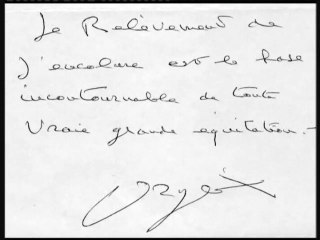 Le Relèvement de
l'encolure est la base
incontournable de toute
Vraie grande équitation.-